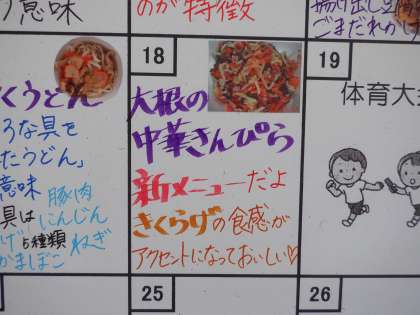 意味
のが特徴
揚げ出し豆腐
ごまだれかけ
18
19
くうどん
ろな具を
たうどん」
意味 豚肉
具は にんじん
げ 5種類 ねぎ
かまぼこ
大根の
中華きんぴら
新メニューだよ
きくらげの食感が
アクセントになっておいしい♡
体育大
25
26